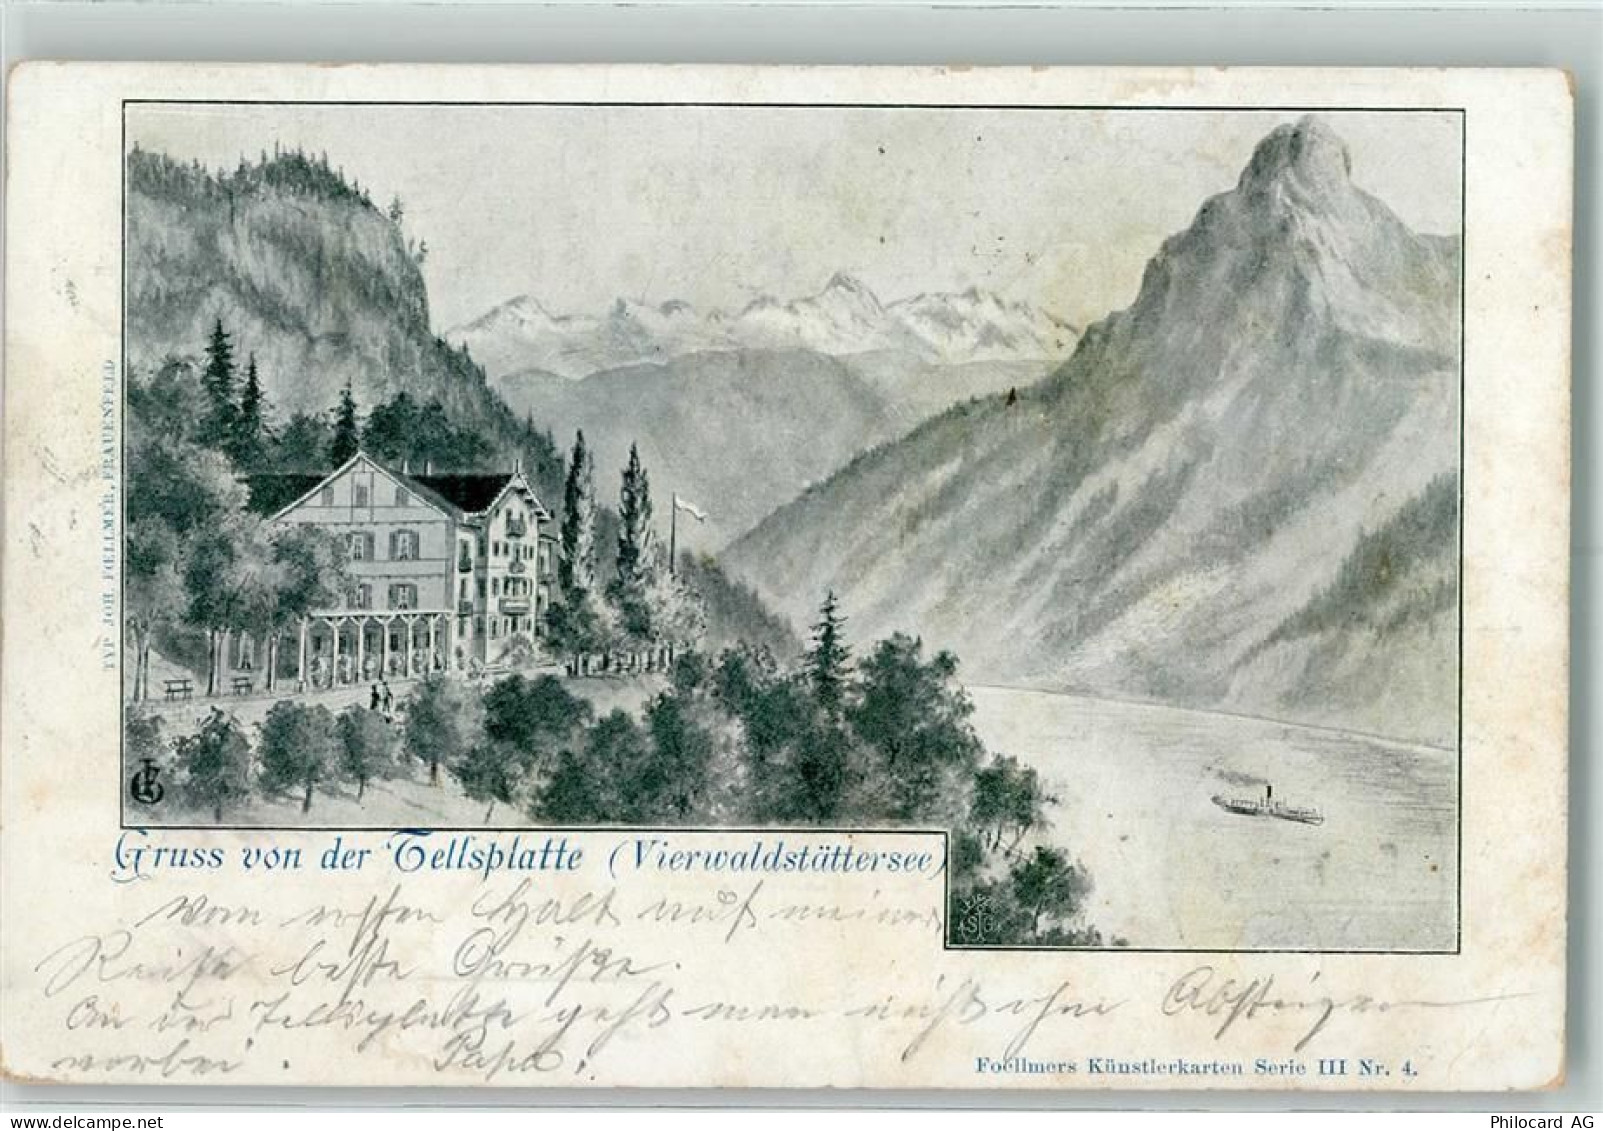 TYP JOH. FŒLLMER, FRAUENFELD
Gruss von der Tellsplatte (Vierwaldstättersee)
Vom ersten Halt auf meiner
Reise beste Grüsse.
An der Tellsplatte geht man nicht ohne Absteigen
vorbei. Papa.
Foellmers Künstlerkarten Serie III Nr. 4.
Philocard AG